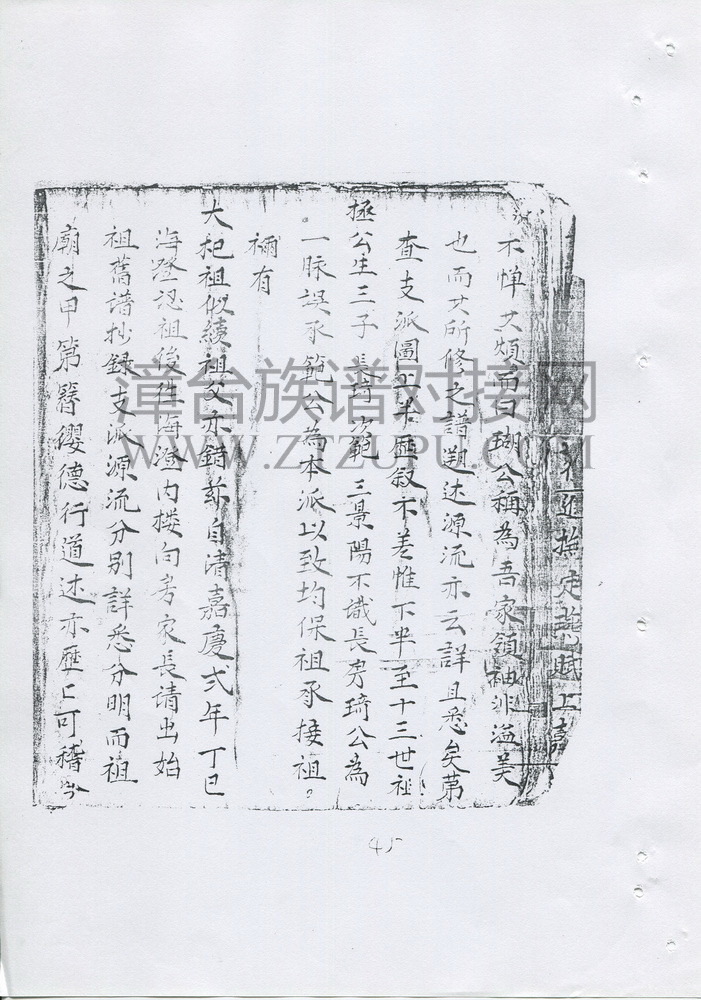 不憚其煩而曰瑚公稱為吾家領袖非溢美
也而其所修之譜溯述源流亦云詳且悉矣第
查支派圖上半歷叙不差惟下半至十三世祖
極公生三子長琦次範三景陽不識長房琦公為
一脉誤承範公為本派以致均保祖承接祖。
禰有
大祀祖似續祖父亦錯茲自清嘉慶弍年丁巳
海澄認祖後往海澄內樓向房家長请出始
祖舊譜抄錄支派源流分别詳悉分明而祖
廟之甲第簪纓德行道述亦歷上可稽今
漳台族谱对接网
WWW.ZTZUPU.COM
45